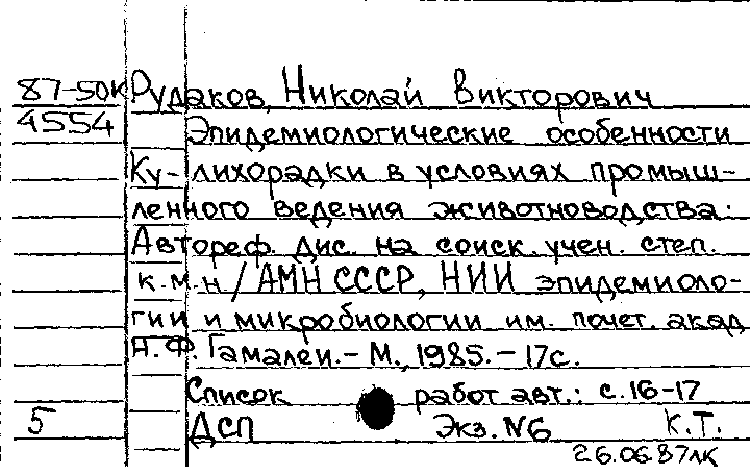 87-50к Рудаков, Николай Викторович
4554 Эпидемиологические особенности
Ку-лихорадки в условиях промыш-
ленного ведения животноводства:
Автореф. дис. на соиск. учен. степ.
к.м.н / АМН СССР, НИИ эпидемиоло-
гии и микробиологии им. почет. акад
Н.Ф. Гамалеи. - М., 1985. - 17с.
Список работ авт.: с. 16-17
5 ДСП Экз. №6 К.Т.
26.06.87лк